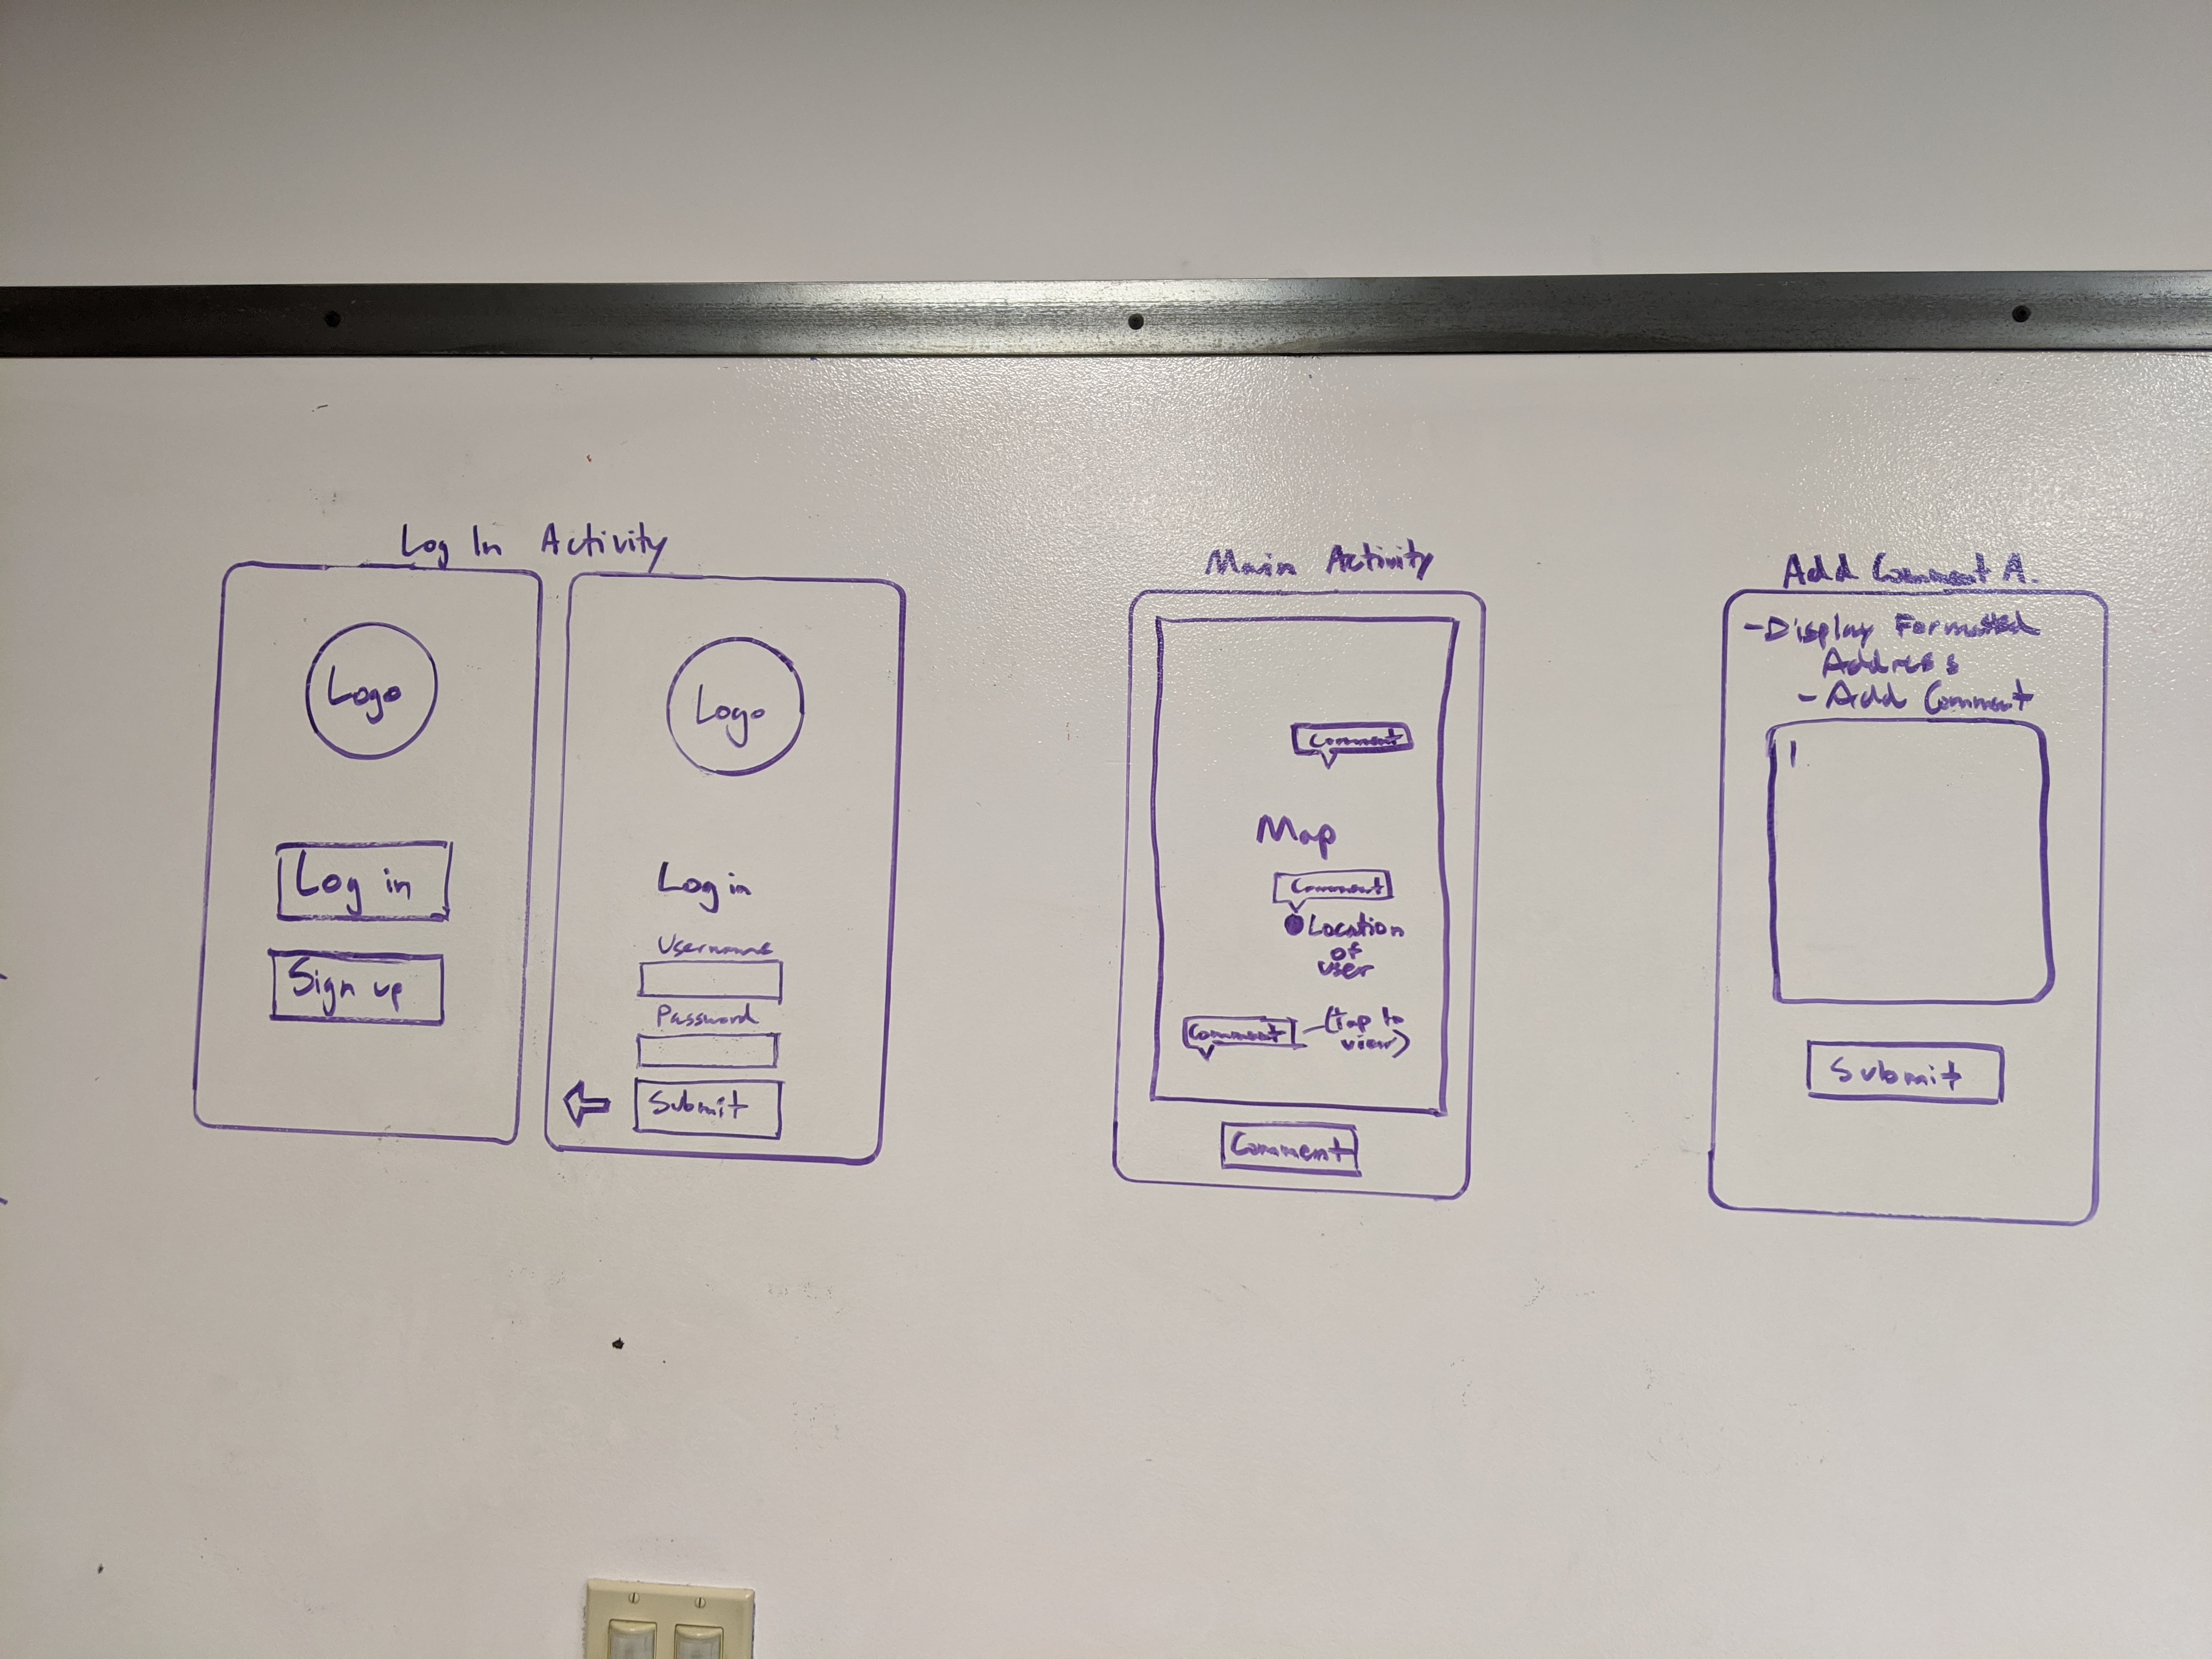 Log In Activity
Logo
Log in
Sign up
Logo
Log in
Username
Password
Submit
Main Activity
Comment
Map
Comment
Location
of
user
Comment
(tap to
view)
Comment
Add Comment A.
-Display Formatted
Address
- Add Comment
Submit